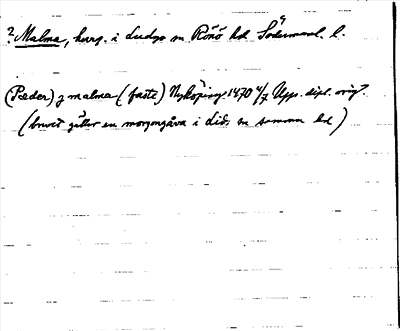 ? Malma, herrg. i Ludgo sn Rönö hd Södermanl. l.
(Peder) j malma (faste) Nyköping 1470 4/7 Upps. dipl. orig.
(brevet gäller en morgongåva i Lids sn samma hd)